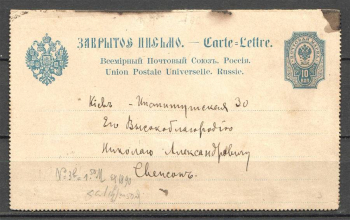 ЗАКРЫТОЕ ПИСЬМО. — Carte-Lettre.
Всемірный Почтовый Союзъ. Россія.
Union Postale Universelle. Russie.
10
Кіевъ - Институтская 30
Его Высокоблагородію
Николаю Александровичу
Свенсонъ.